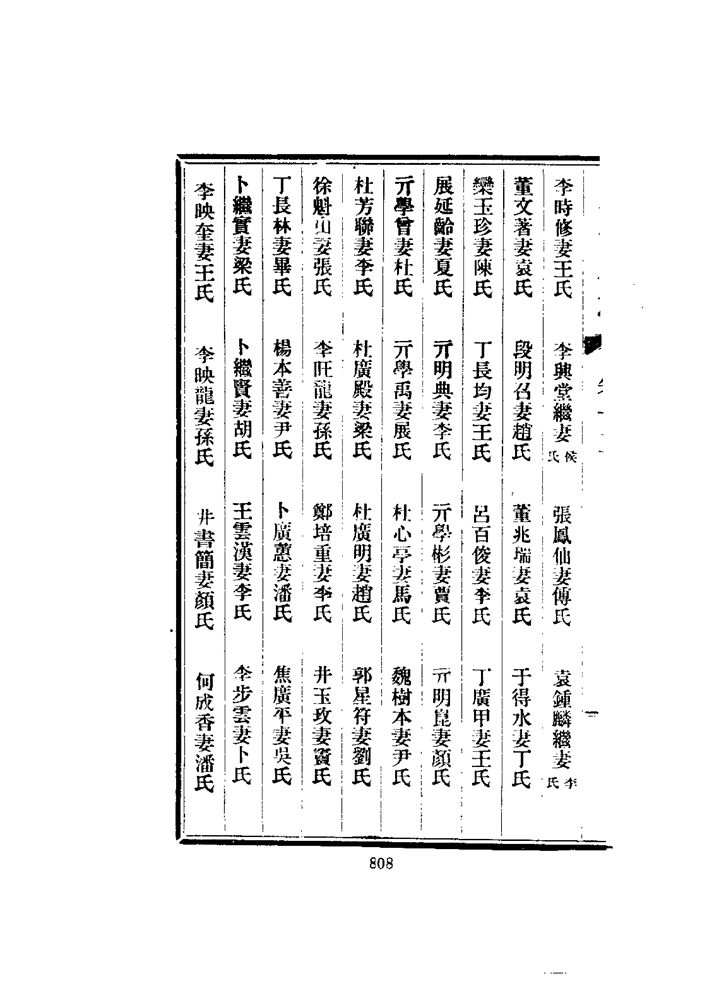 李時修妻王氏　李興堂繼妻侯氏　張鳳仙妻傅氏　袁鍾麟繼妻李氏
董文著妻袁氏　段明召妻趙氏　董兆瑞妻袁氏　于得水妻丁氏
欒玉珍妻陳氏　丁長均妻王氏　呂百俊妻李氏　丁廣甲妻王氏
展延齡妻夏氏　亓明典妻李氏　亓學彬妻賈氏　亓明崑妻顏氏
亓學曾妻杜氏　亓學禹妻展氏　杜心亭妻馬氏　魏樹本妻尹氏
杜芳聯妻李氏　杜廣殿妻梁氏　杜廣明妻趙氏　郭星符妻劉氏
徐魁山妻張氏　李旺龍妻孫氏　鄭培重妻李氏　井玉玫妻竇氏
丁長林妻畢氏　楊本善妻尹氏　卜廣蕙妻潘氏　焦廣平妻吳氏
卜繼實妻梁氏　卜繼賢妻胡氏　王雲漢妻李氏　李步雲妻卜氏
李映奎妻王氏　李映龍妻孫氏　井書簡妻顏氏　何成香妻潘氏
808